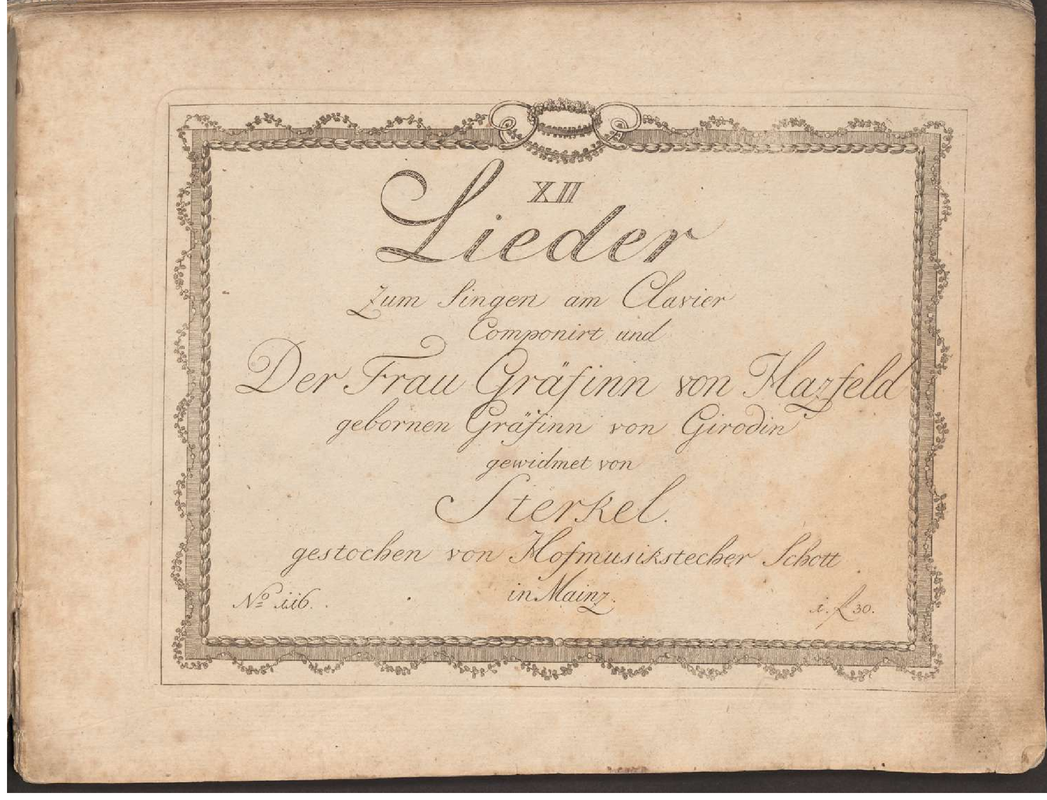 XII
Lieder
Zum Singen am Clavier
Componirt und
Der Frau Gräfinn von Hazfeld
gebornen Gräfinn von Girodin
gewidmet von
Sterkel.
gestochen von Hofmusikstecher Schott
in Mainz.
No 116. 1. f. 30.